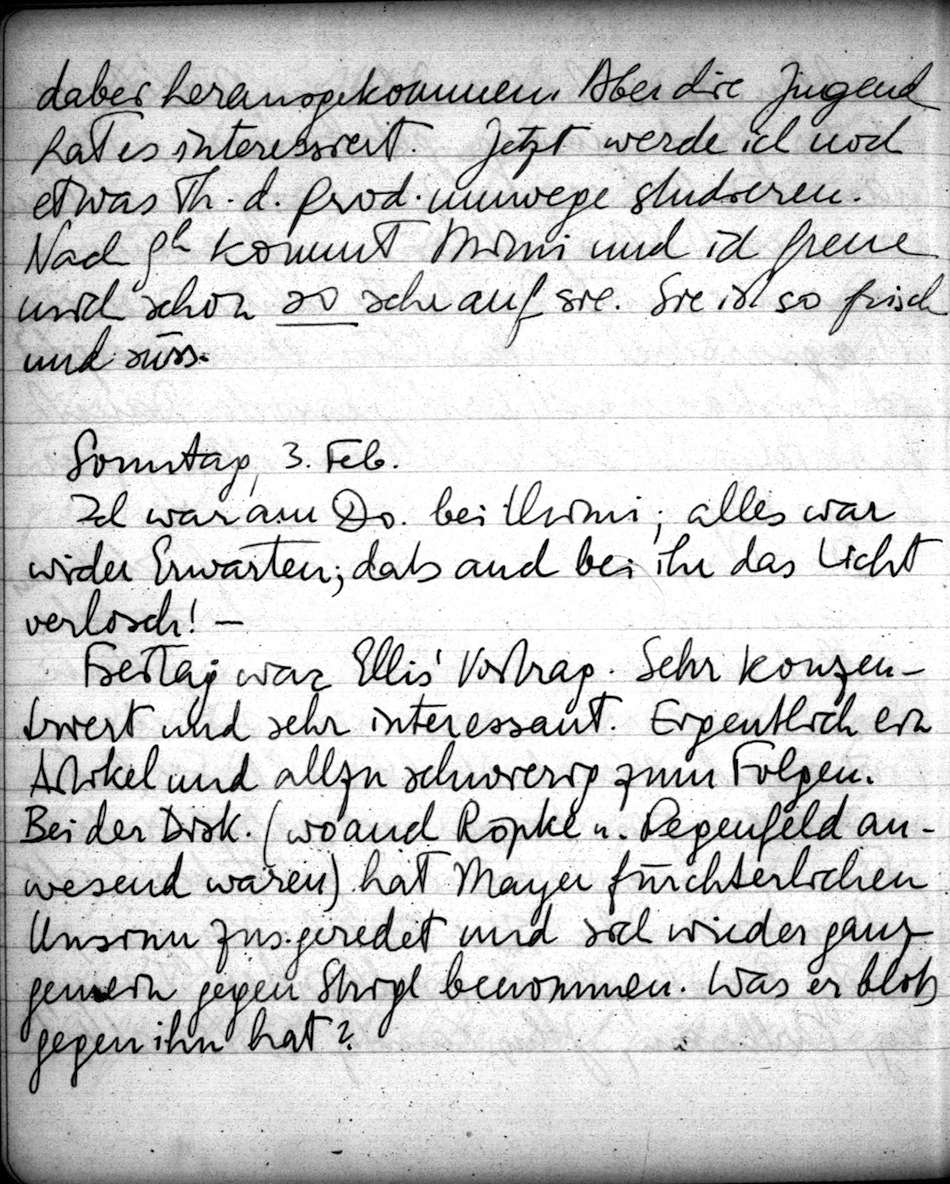 dabei herausgekommen. Aber die Jugend
hat es interessiert. Jetzt werde ich noch
etwas Th. d. Prod.umwege studieren.
Nach 9h kommt Mimi und ich freue
mich schon so sehr auf sie. Sie ist so frisch
und süss.
Sonntag, 3. Feb.
Ich war am Do. bei Mimi; alles war
wider Erwarten; dass auch bei ihr das Licht
verlosch! —
Freitag war Ellis' Vortrag. Sehr konzen-
triert und sehr interessant. Eigentlich ein
Artikel und allzu schwierig zum Folgen.
Bei der Disk. (wo auch Röpke u. Degenfeld an-
wesend waren) hat Mayer fürchterlichen
Unsinn zus.geredet und sich wieder ganz
gemein gegen Strigl benommen. Was er bloss
gegen ihn hat?